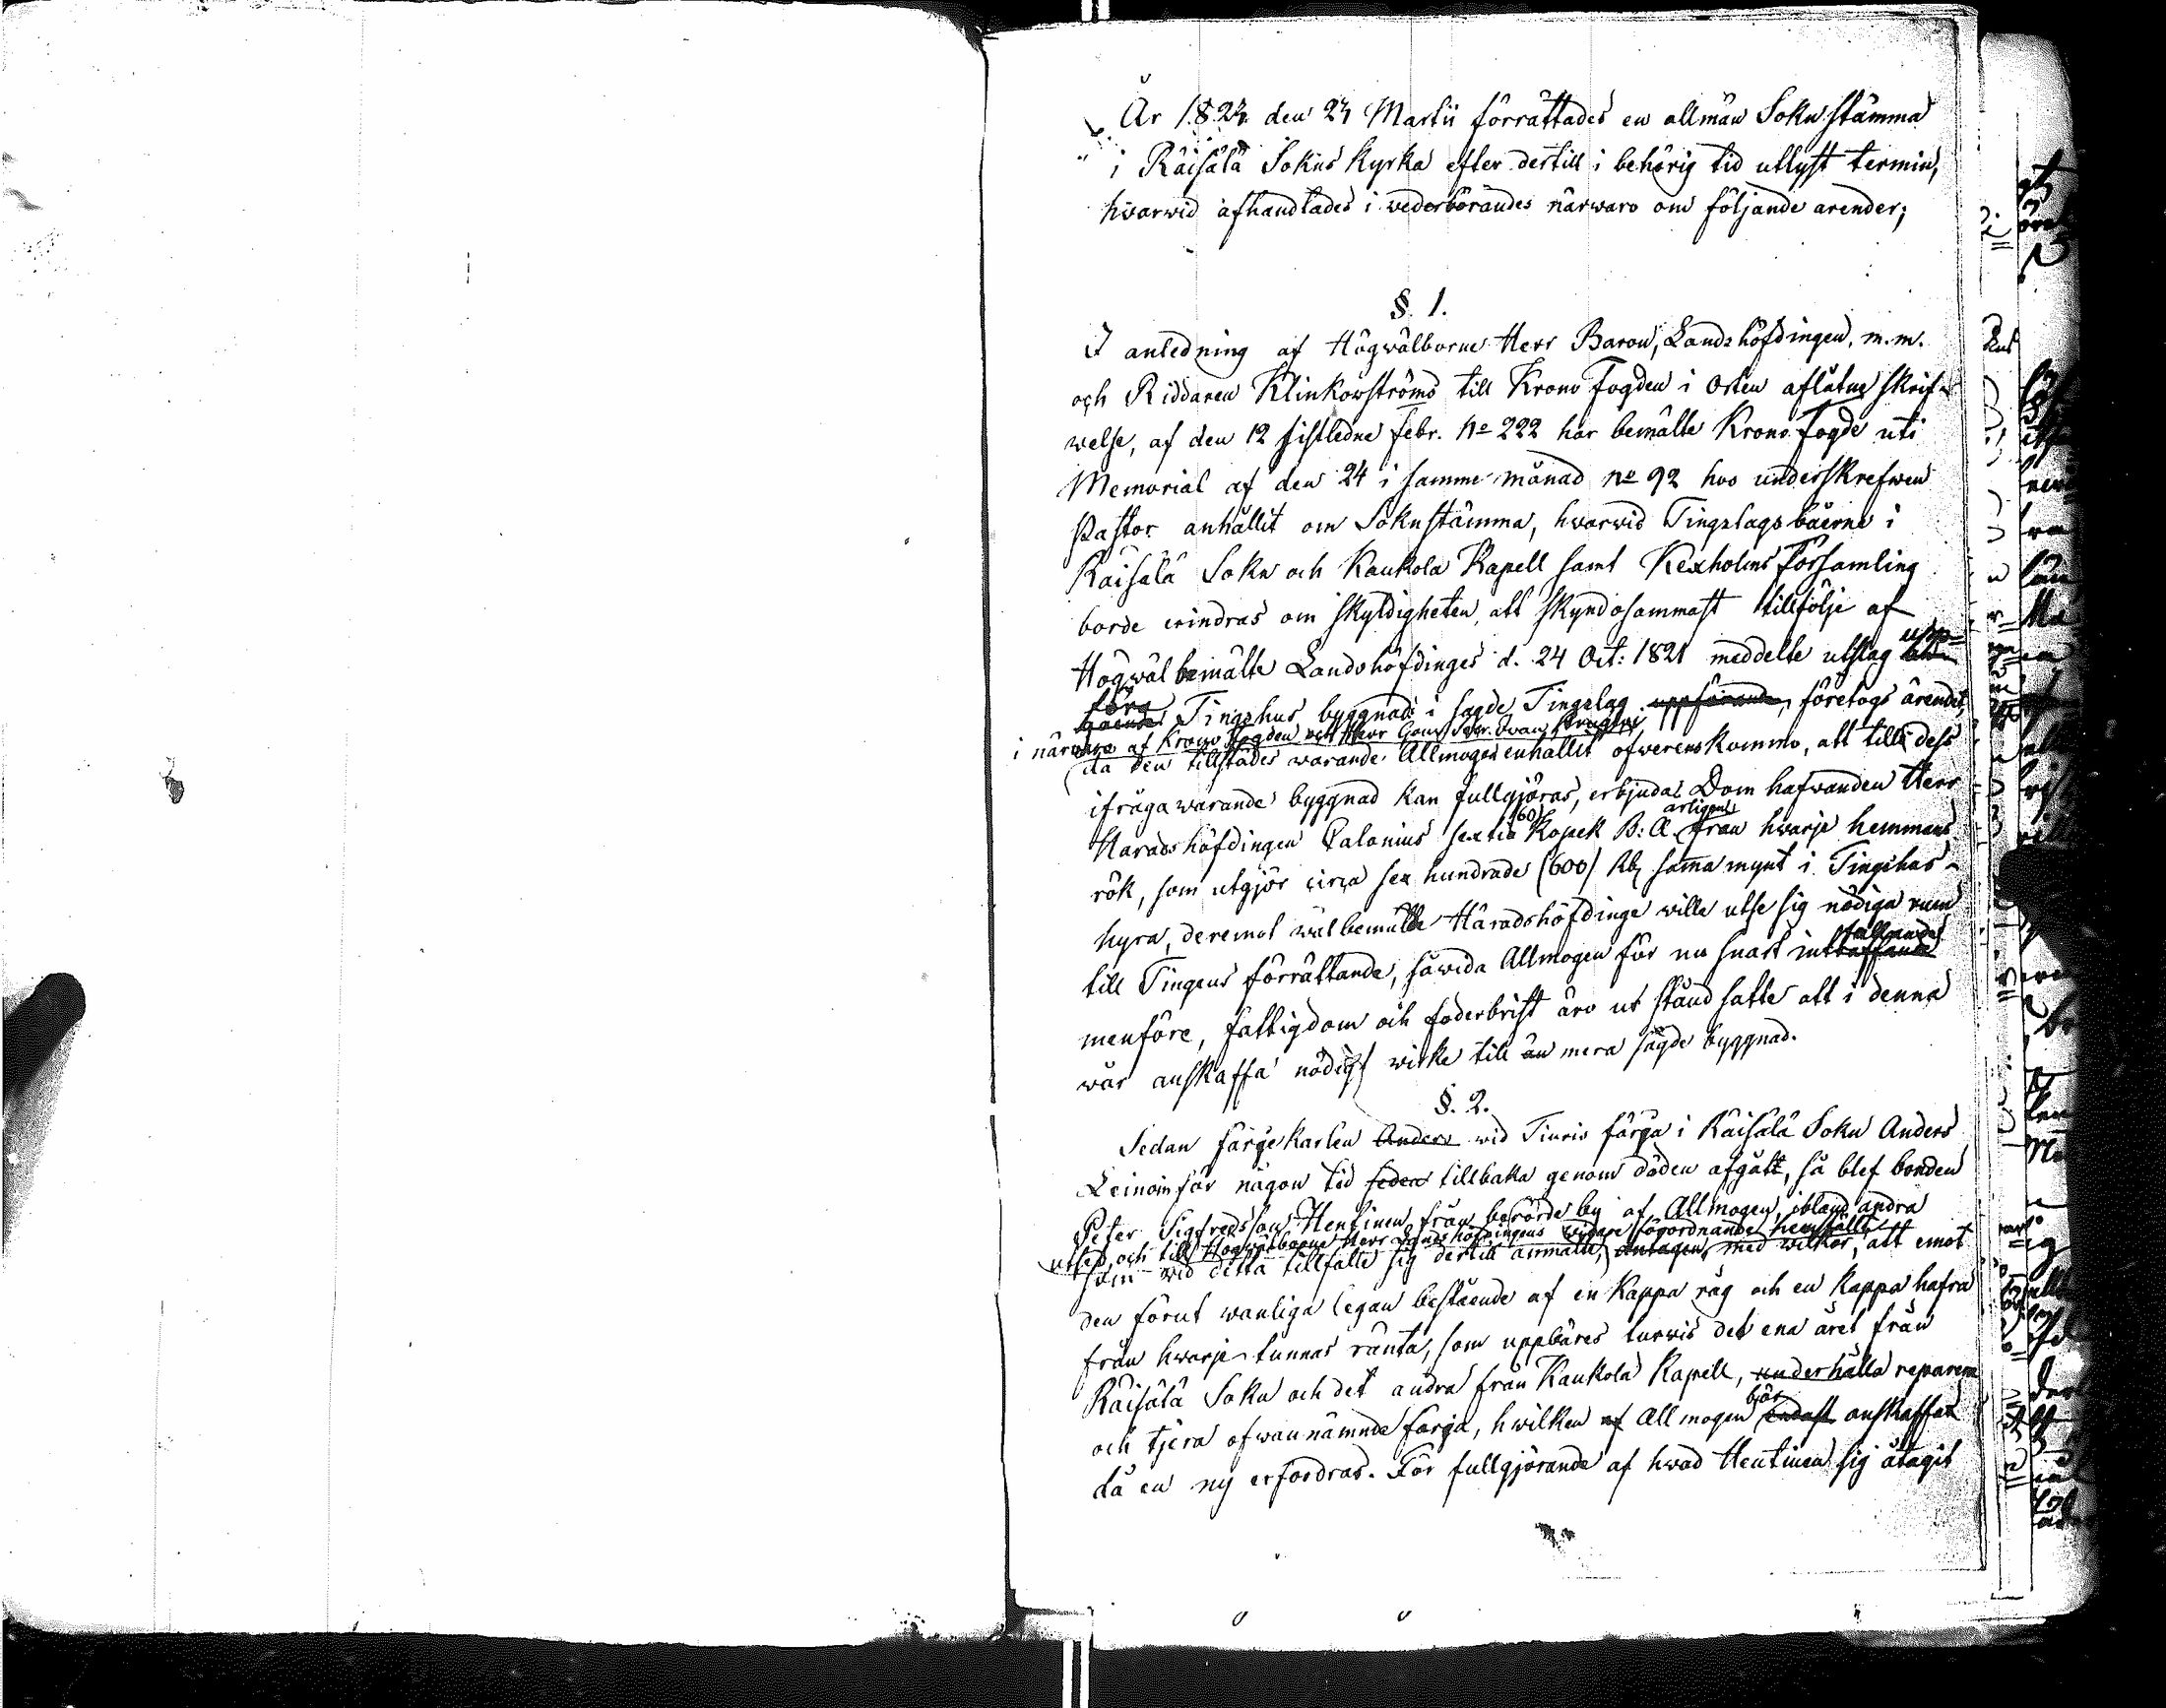 År 1823 den 23 Martii förrättades en allmän Sokn stämma
i Räisälä Sokns Kyrka efter dertill i behörig tid utlyst termin,
hvarwid afhandlades i wederbörandes närwaro om följande ärender;
§. 1.
I anledning af Högwälborne Herr Baron, Landshöfdingen, m.m.
och Riddaren Klinkowströms till Krono Fogden i Orten aflåtne skrif-
welse, af den 12 sistledne Febr. No 222 har bemälte Krono Fogde uti
Memorial af den 24 i samme månad No 92 hos underskrefwen
Pastor anhållit om Soknstämma, hwarwid Tingslagsboerne i
Räisälä Sokn och Kaukola Kapell samt Kexholms Församling
borde erindras om skyldigheten att skyndosammast tillfölje af
Högwälbemälte Landshöfdinges d. 24 Oct: 1821 meddelte utslag upp-
föra Tingshus byggnad i sagde Tingslag uppförande, företogs ärendet,
i närwaro af Krono Fogden och Herr
då den tillstädes warande Allmogen enhällit öfwerenskommo, att till dess
ifrågawarande byggnad kan fullgjöras, erbjuda Dom hafwanden Herr
Häradshöfdingen Calonius sextio (60) Kopek B: A. årligen från hwarje hemmans
rök, som utgjör circa sex hundrade (600) Rb samma mynt i Tingshus-
hyra, deremot wälbemälte Häradshöfdinge wille utse sig nödiga rum
till Tingens förrättande, såwida Allmogen för nu snart infallande
menföre, fattigdom och foderbrist äro ur stånd satte att i denna
wår anskaffa nödigt wirke till än mera sagde byggnad.
§. 2.
Sedan färgekarlen Anders wid Tiuris färga i Räisälä Sokn Anders
Leinoin för någon tid sedan tillbaka genom döden afgått, så blef bonden
Peter Sigfredsson Hentinen från berörde by af Allmogen ibland andra
utsed, och till Högwälborne Herr Landshöfdingens widare förordnande hemställt
som wid detta tillfälle sig dertill anmälte, antagen med wilkor, att emot
den förut wanliga legan bestående af en kappa råg och en kappa hafra
från hwarje tunnas ränta, som uppbäres turwis det ena året från
Räisälä Sokn och det andra från Kaukola Kapell, underhålla reparera
och tjära ofwannämnde färga, hwilken af Allmogen bör endast anskaffas
då en ny erfordras. För fullgjörande af hwad Hentinen sig åtagit